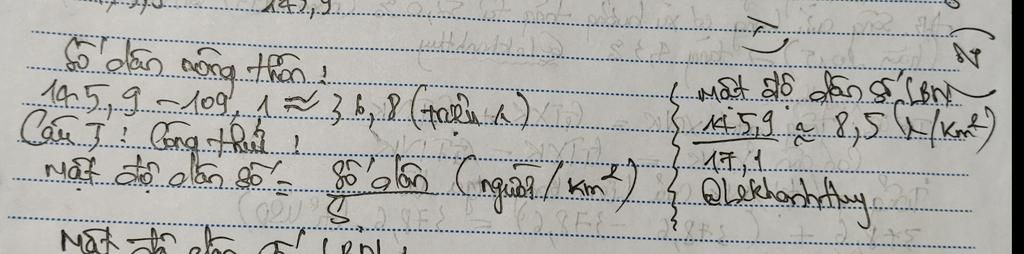 145,9
Số dân nông thôn :
145,9 - 109,1 ≈ 36,8 (triệu n)
Câu 3 : Công thức :
Mật độ dân số = Số dân / S (người/km²)
Mật độ dân số (BN
145,9 / 17,1 ≈ 8,5 (n/km²)
@Lekhanhthuy
Mật độ dân số (BN) :